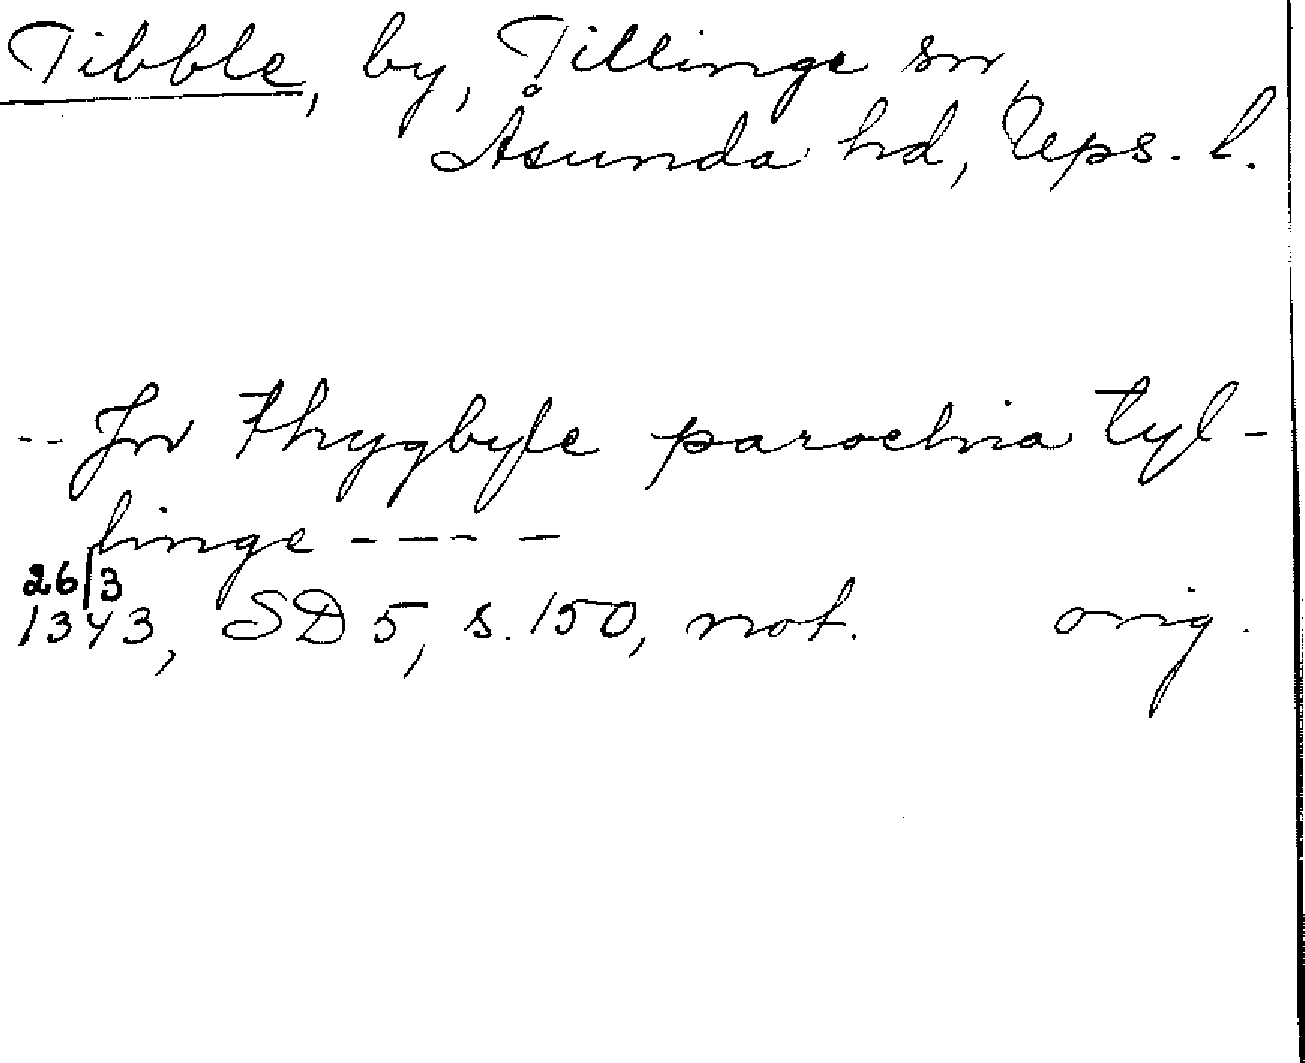 Tibble, by, Tillinge sn
Åsunda hd, Ups. l.
-- Jn Thygbyle parochia tyl-
linge - - - - -
26/3
1343, SD 5, s. 150, not. orig.